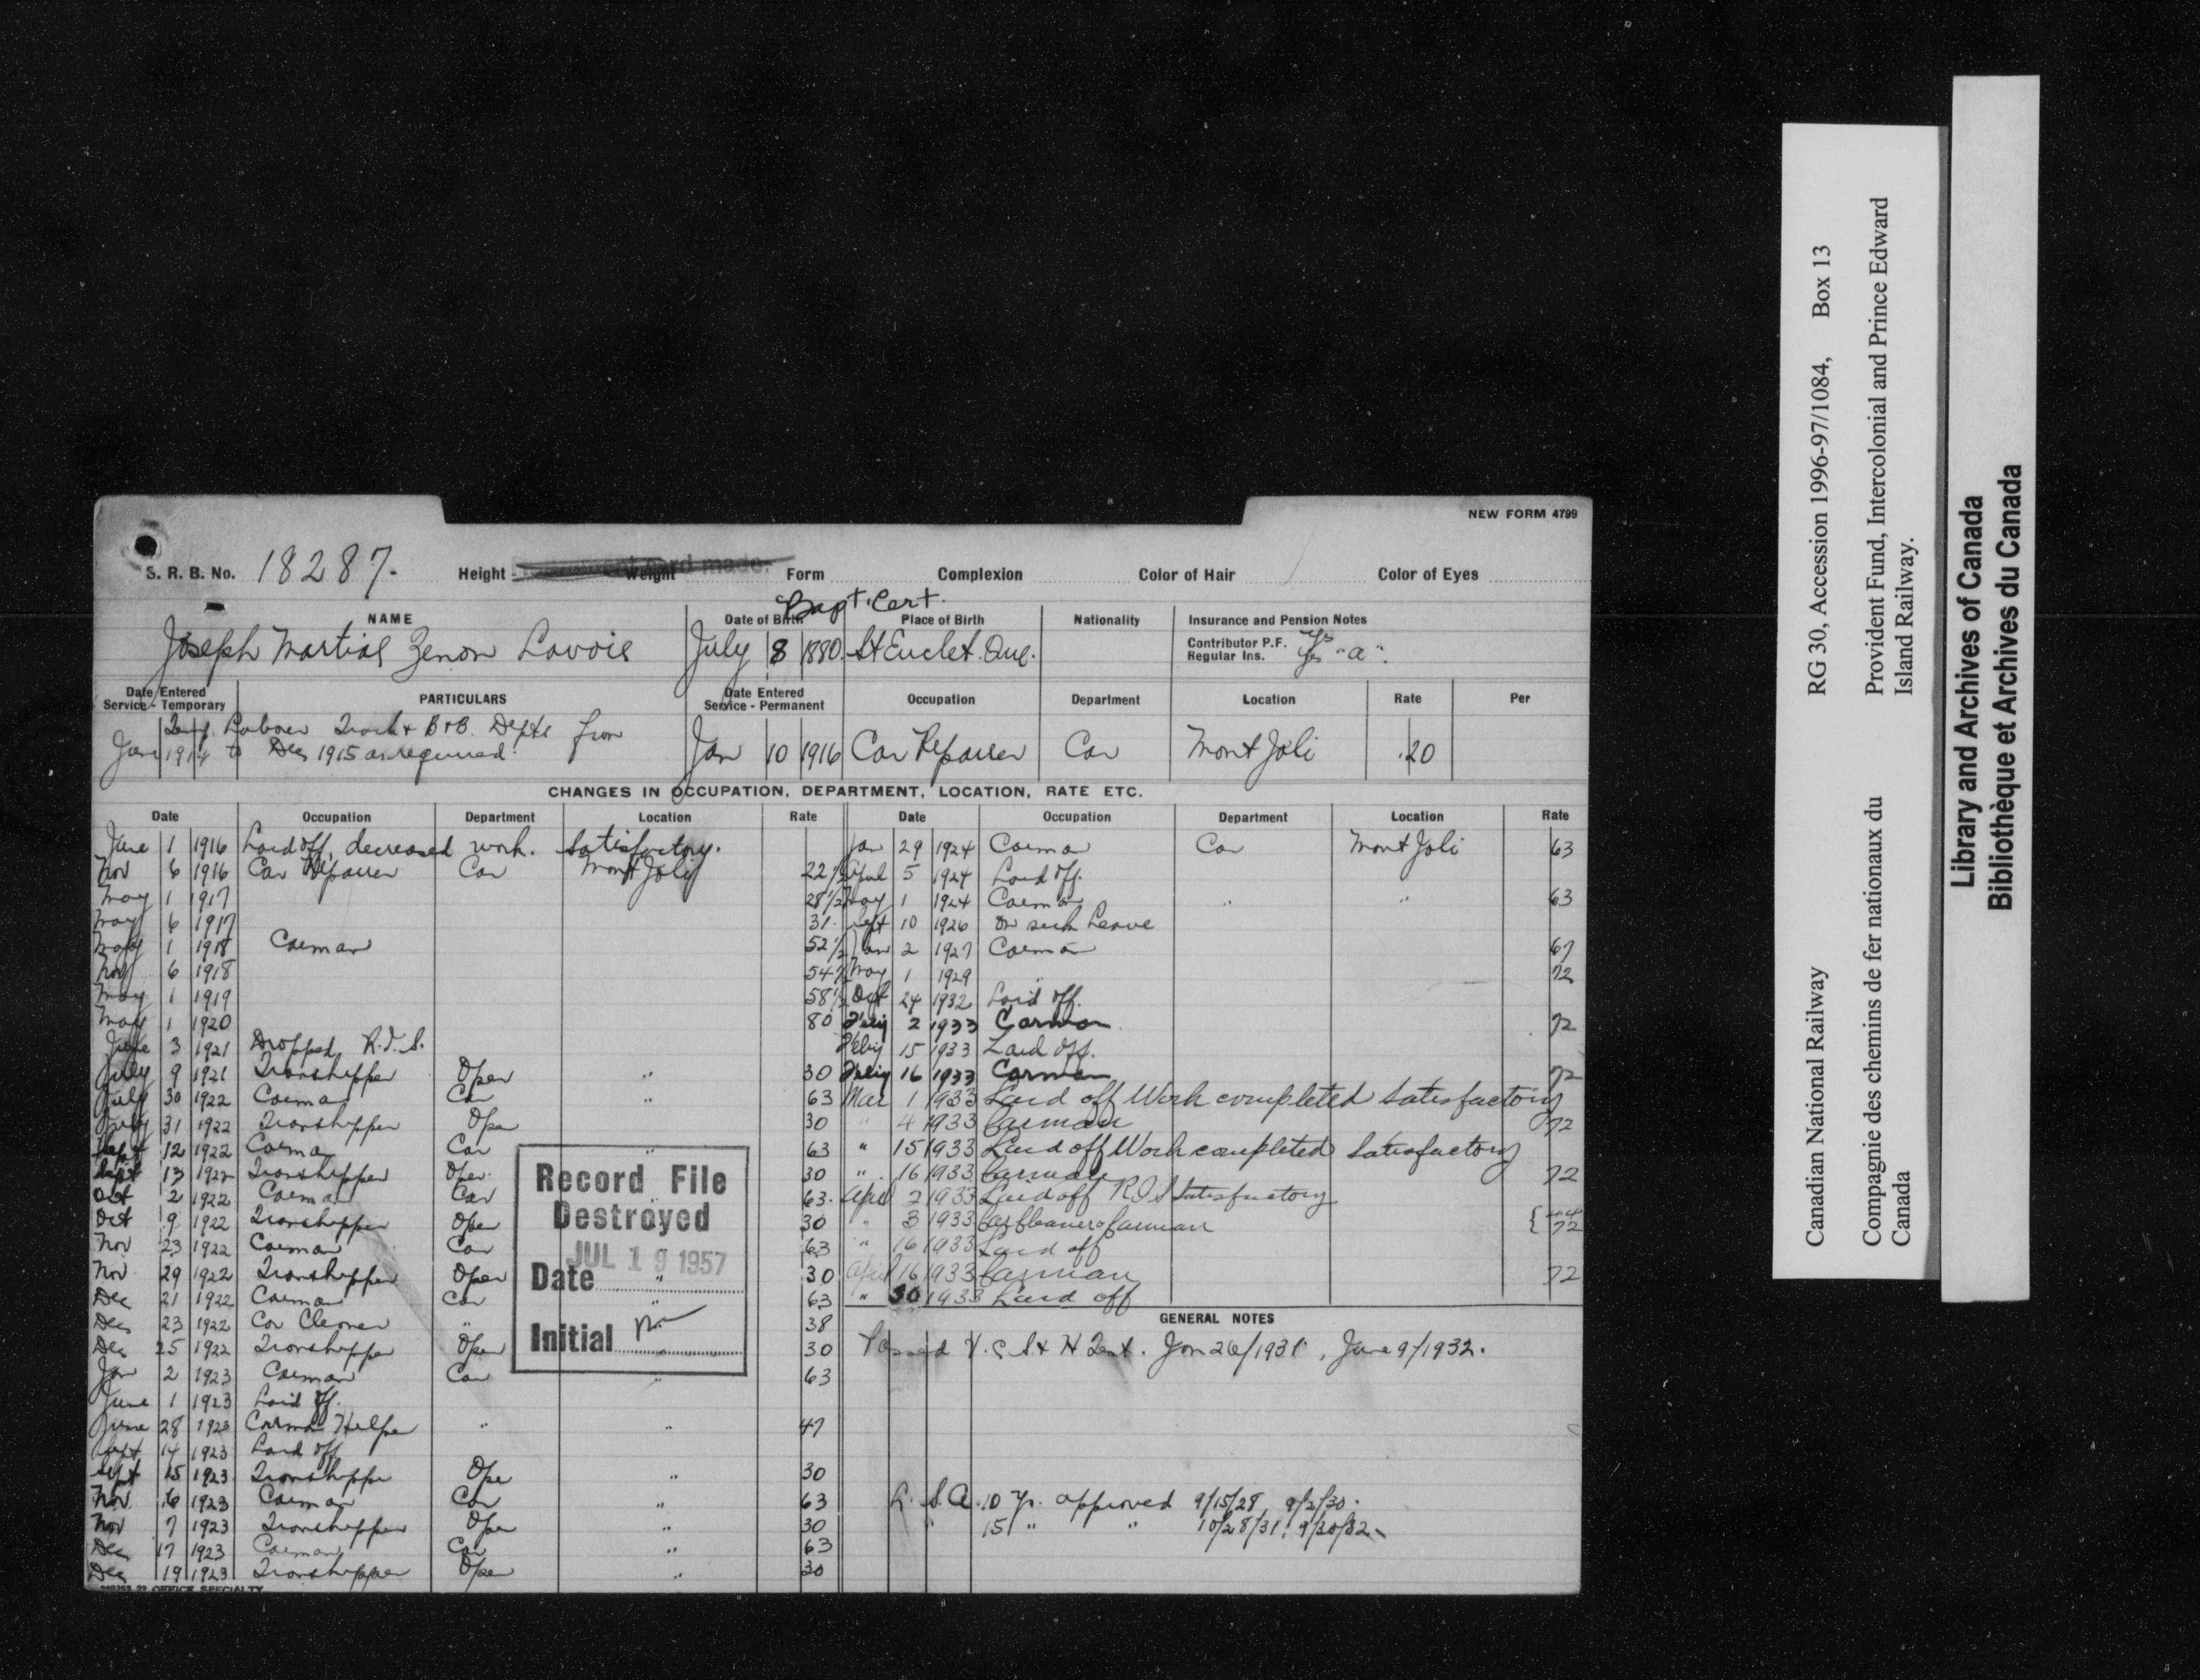 NEW FORM 4799
S. R. B. No. 18287. Height Weight card made. Form Complexion Color of Hair Color of Eyes
Bapt. Cert.
NAME Date of Birth Place of Birth Nationality Insurance and Pension Notes
Joseph Martial Zenon Lavoie July 8 1880. St Euclet. Que. Contributor P.F. Yes
Regular Ins. Yes "a".
Date Entered Service - Temporary PARTICULARS Date Entered Service - Permanent Occupation Department Location Rate Per
Temp. Laborer Track & B+B. Depts from
Jan 1914 to Dec 1915 as required. Jan 10 1916 Car Repairer Car Mont Joli .20
CHANGES IN OCCUPATION, DEPARTMENT, LOCATION, RATE ETC.
Date Occupation Department Location Rate
June 1 1916 Laid off, decreased work. Satisfactory.
Nov 6 1916 Car Repairer Car Mont Joli 22 1/2
May 1 1917 28 1/2
May 6 1917 31.
May 1 1918 Carman 52 1/2
Nov 6 1918 54 1/2
May 1 1919 58 1/2
May 1 1920 80
June 3 1921 Dropped R.I.S.
July 9 1921 Transhipper Oper " 30
July 30 1922 Carman Car " 63
July 31 1922 Transhipper Oper 30
Sept 12 1922 Carman Car " 63
Sept 13 1922 Transhipper Oper. 30
Oct 2 1922 Carman Car " 63.
Oct 9 1922 Transhipper Oper 30
Nov 23 1922 Carman Car 63
Nov 29 1922 Transhipper Oper " 30
Dec 21 1922 Carman Car " 63
Dec 23 1922 Car Cleaner " 38
Dec 25 1922 Transhipper Oper " 30
Jan 2 1923 Carman Car " 63
June 1 1923 Laid off.
June 28 1923 Carman Helper " " 47
Sept 14 1923 Laid off
Sept 15 1923 Transhipper Oper " 30
Nov 6 1923 Carman Car " 63
Nov 7 1923 Transhipper Oper " 30
Dec 17 1923 Carman Car " 63
Dec 19 1923 Transhipper Oper " 30
OFFICE SPECIALTY
Record File
Destroyed
JUL 19 1957
Date
Initial
Date Occupation Department Location Rate
Jan 29 1924 Carman Car Mont Joli 63
April 5 1924 Laid off.
May 1 1924 Carman " " 63
Sept 10 1926 On sick Leave
Jan 2 1927 Carman 67
May 1 1929 " 72
Oct 24 1932 Laid off.
Feby 2 1933 Carman 72
Feby 15 1933 Laid off.
Feby 16 1933 Carman 72
Mar 1 1933 Laid off Work completed Satisfactory
" 4 1933 Carman 72
" 15 1933 Laid off Work completed Satisfactory
" 16 1933 Carman 72
April 2 1933 Laid off R I S Satisfactory
" 3 1933 Car Cleaner & Carman { 44 72
" 16 1933 Laid off
April 16 1933 Carman 72
" 30 1933 Laid off
GENERAL NOTES
Passed V.C.S + H Test. Jan 26/1931, June 9/1932.
L. S. A. 10 yr. approved 9/15/28 9/2/30.
" 15 " " 10/28/31, 9/30/32
Canadian National Railway RG 30, Accession 1996-97/1084, Box 13
Compagnie des chemins de fer nationaux du Canada
Provident Fund, Intercolonial and Prince Edward Island Railway.
Library and Archives of Canada
Bibliothèque et Archives du Canada